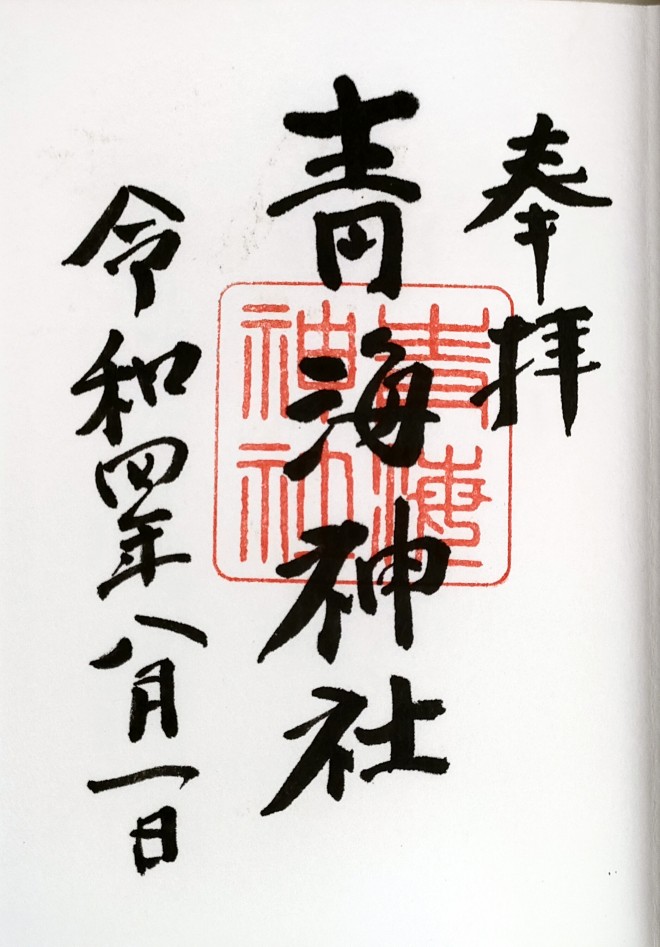 奉拝
青海神社
青海神社
令和四年八月一日